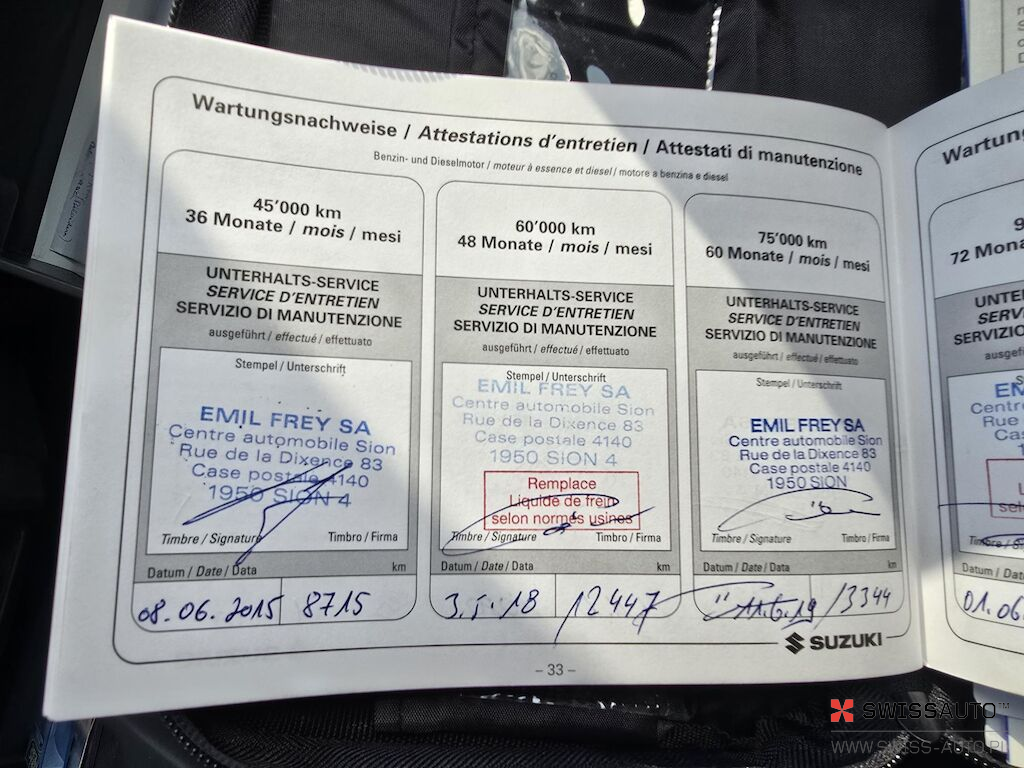 Wartungsnachweise / Attestations d'entretien / Attestati di manutenzione
Benzin- und Dieselmotor / moteur à essence et diesel / motore a benzina e diesel
45'000 km
36 Monate / mois / mesi
UNTERHALTS-SERVICE
SERVICE D'ENTRETIEN
SERVIZIO DI MANUTENZIONE
ausgeführt / effectué / effettuato
Stempel / Unterschrift
EMIL FREY SA
Centre automobile Sion
Rue de la Dixence 83
Case postale 4140
1950 SION 4
Timbre / Signature Timbro / Firma
Datum / Date / Data km
08.06.2015 8715
60'000 km
48 Monate / mois / mesi
UNTERHALTS-SERVICE
SERVICE D'ENTRETIEN
SERVIZIO DI MANUTENZIONE
ausgeführt / effectué / effettuato
Stempel / Unterschrift
EMIL FREY SA
Centre automobile Sion
Rue de la Dixence 83
Case postale 4140
1950 SION 4
Remplace
Liquide de frein
selon normes usines
Timbre / Signature Timbro / Firma
Datum / Date / Data km
3.5.18 12447
75'000 km
60 Monate / mois / mesi
UNTERHALTS-SERVICE
SERVICE D'ENTRETIEN
SERVIZIO DI MANUTENZIONE
ausgeführt / effectué / effettuato
Stempel / Unterschrift
EMIL FREY SA
Centre automobile Sion
Rue de la Dixence 83
Case postale 4140
1950 SION
Timbre / Signature Timbro / Firma
Datum / Date / Data km
11.6.19 13344
SUZUKI
– 33 –
Wartung
72 Mona
UNTER
SERVI
SERVIZ
ausgef
EMIL
Centr
Rue
Cas
Datum /
01.06
SWISSAUTO™
WWW.SWISS-AUTO.PL